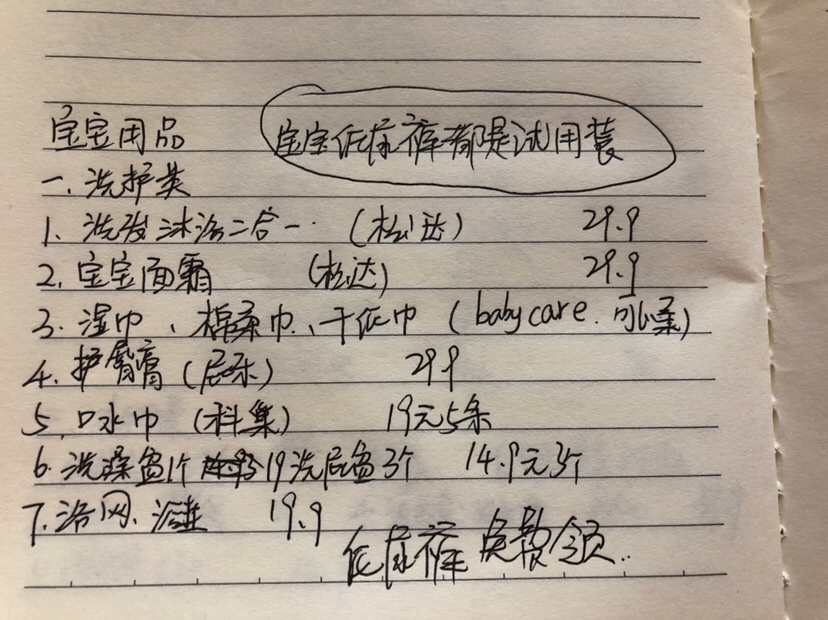 宝宝用品
宝宝纸尿裤都是试用装
一、洗护类
1、洗发沐浴二合一 (松达) 29.9
2、宝宝面霜 (松达) 29.9
3、湿巾、棉柔巾、干纸巾 (babycare. 可心柔)
4、护臀膏 (屁乐) 299
5、口水巾 (科巢) 19元5条
6、洗澡盆1个 19洗屁盆3个 14.9元3个
7、浴网、 19.9
纸尿裤免费领..